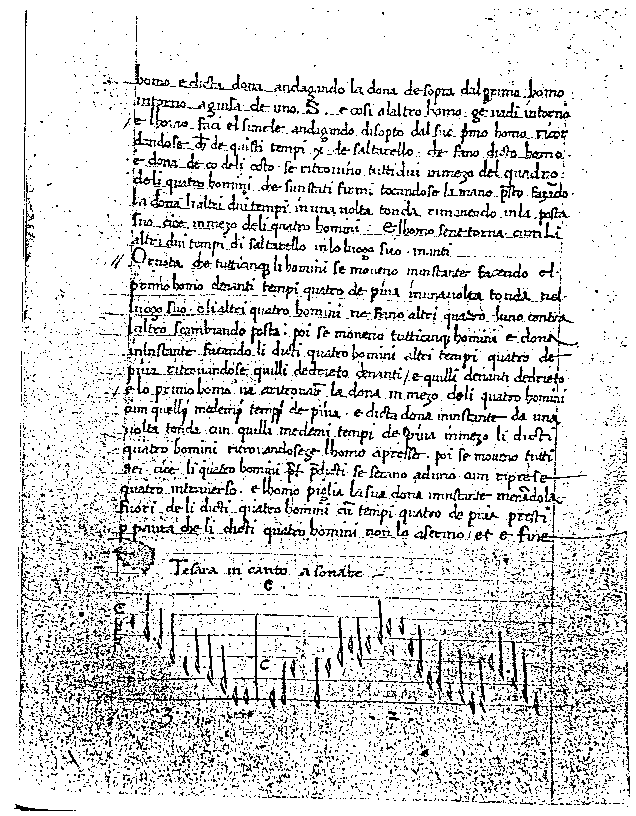 homo e dicta dona andagando la dona de sopra dal primo homo
intorno a guisa de uno .S. e cosi a laltro homo ge vadi intorno
e lhomo faci el simele andigando disopto dal suo pmo homo
dandose de quisti tempi xi de saltarello che fano dicto homo
e dona de co deli costo se ritrovino tutti dui in mezo del quadro
deli quatro homini che sun stati firmi tocandose la mano facendo
la dona li altri dui tempi in una volta tonda rimanendo in la posta
sua cioe in mezo de li quatro homini E lhomo sene torna cum li
altri dui tempi di saltarello in lo luogo suo
Or nota che tutti cinq li homini se moveno in instante facendo el
primo homo denanti tempi quatro de piva in una volta tonda nel
luogo suo e li altri quatro homini ne fano altri quatro luno contra
laltro scambiando posta poi se moveno tutti cinq homini e dona
in instante facendo li dicti quatro homini altri tempi quatro de
piva ritrovandose quilli dedreto denanti / e quilli denanti dedreto
e lo primo homo va a ritrovar la dona in mezo de li quatro homini
cum quelli medemi tempi de piva e dicta dona in instante da una
volta tonda cun quilli medemi tempi de piva in mezo li dicti
quatro homini ritrovandosege lhomo apresso poi se moveno tutti
sei cioe li quatro homini se serano aduno cum riprese
quatro in traverso e lhomo piglia la sua dona in instante menandola
fuori de li dicti quatro homini cu tempi quatro de piva presti
p paura che li dicti quatro homini non la aserino / et e fine
Tesara in canto a sonare
C
C